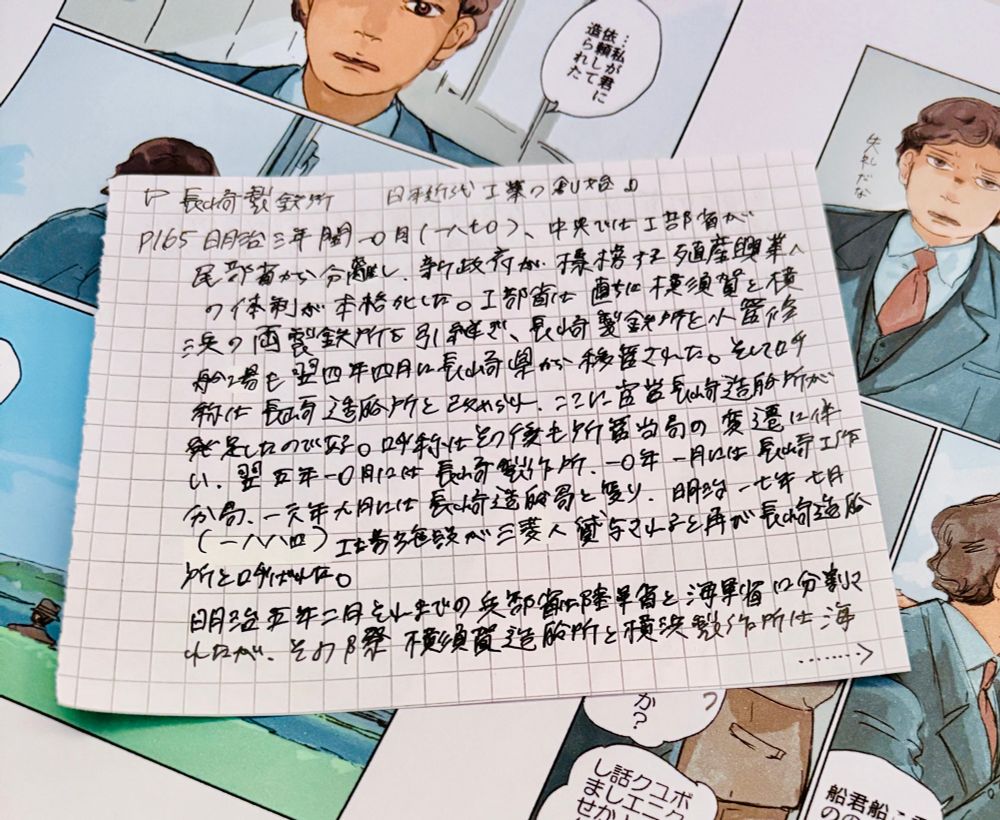 …私が君に
依頼して
造られた
失礼だな
▷ 長崎製鉄所 日本近代工業の創始
P165 明治三年閏一〇月(一八七〇)、中央では工部省が
民部省から分離し、新政府が標榜する殖産興業へ
の体制が本格化した。工部省は直ちに横須賀と横
浜の両製鉄所を引継ぎ、長崎製鉄所と小菅修
船場も翌四年四月に長崎県から移管された。そして呼
称は長崎造船所と改められ、ここに官営長崎造船所が
発足したのである。呼称はその後も所管当局の変遷に伴
い、翌五年一〇月には長崎製作所、一〇年一月には長崎工作
分局、一六年九月には長崎造船局と変り、明治一七年七月
(一八八四)工場施設が三菱へ貸与されると再び長崎造船
所と呼ばれた。
明治五年二月それまでの兵部省は陸軍省と海軍省に分割さ
れたが、その際横須賀造船所と横浜製作所は海
‥‥‥>
か?